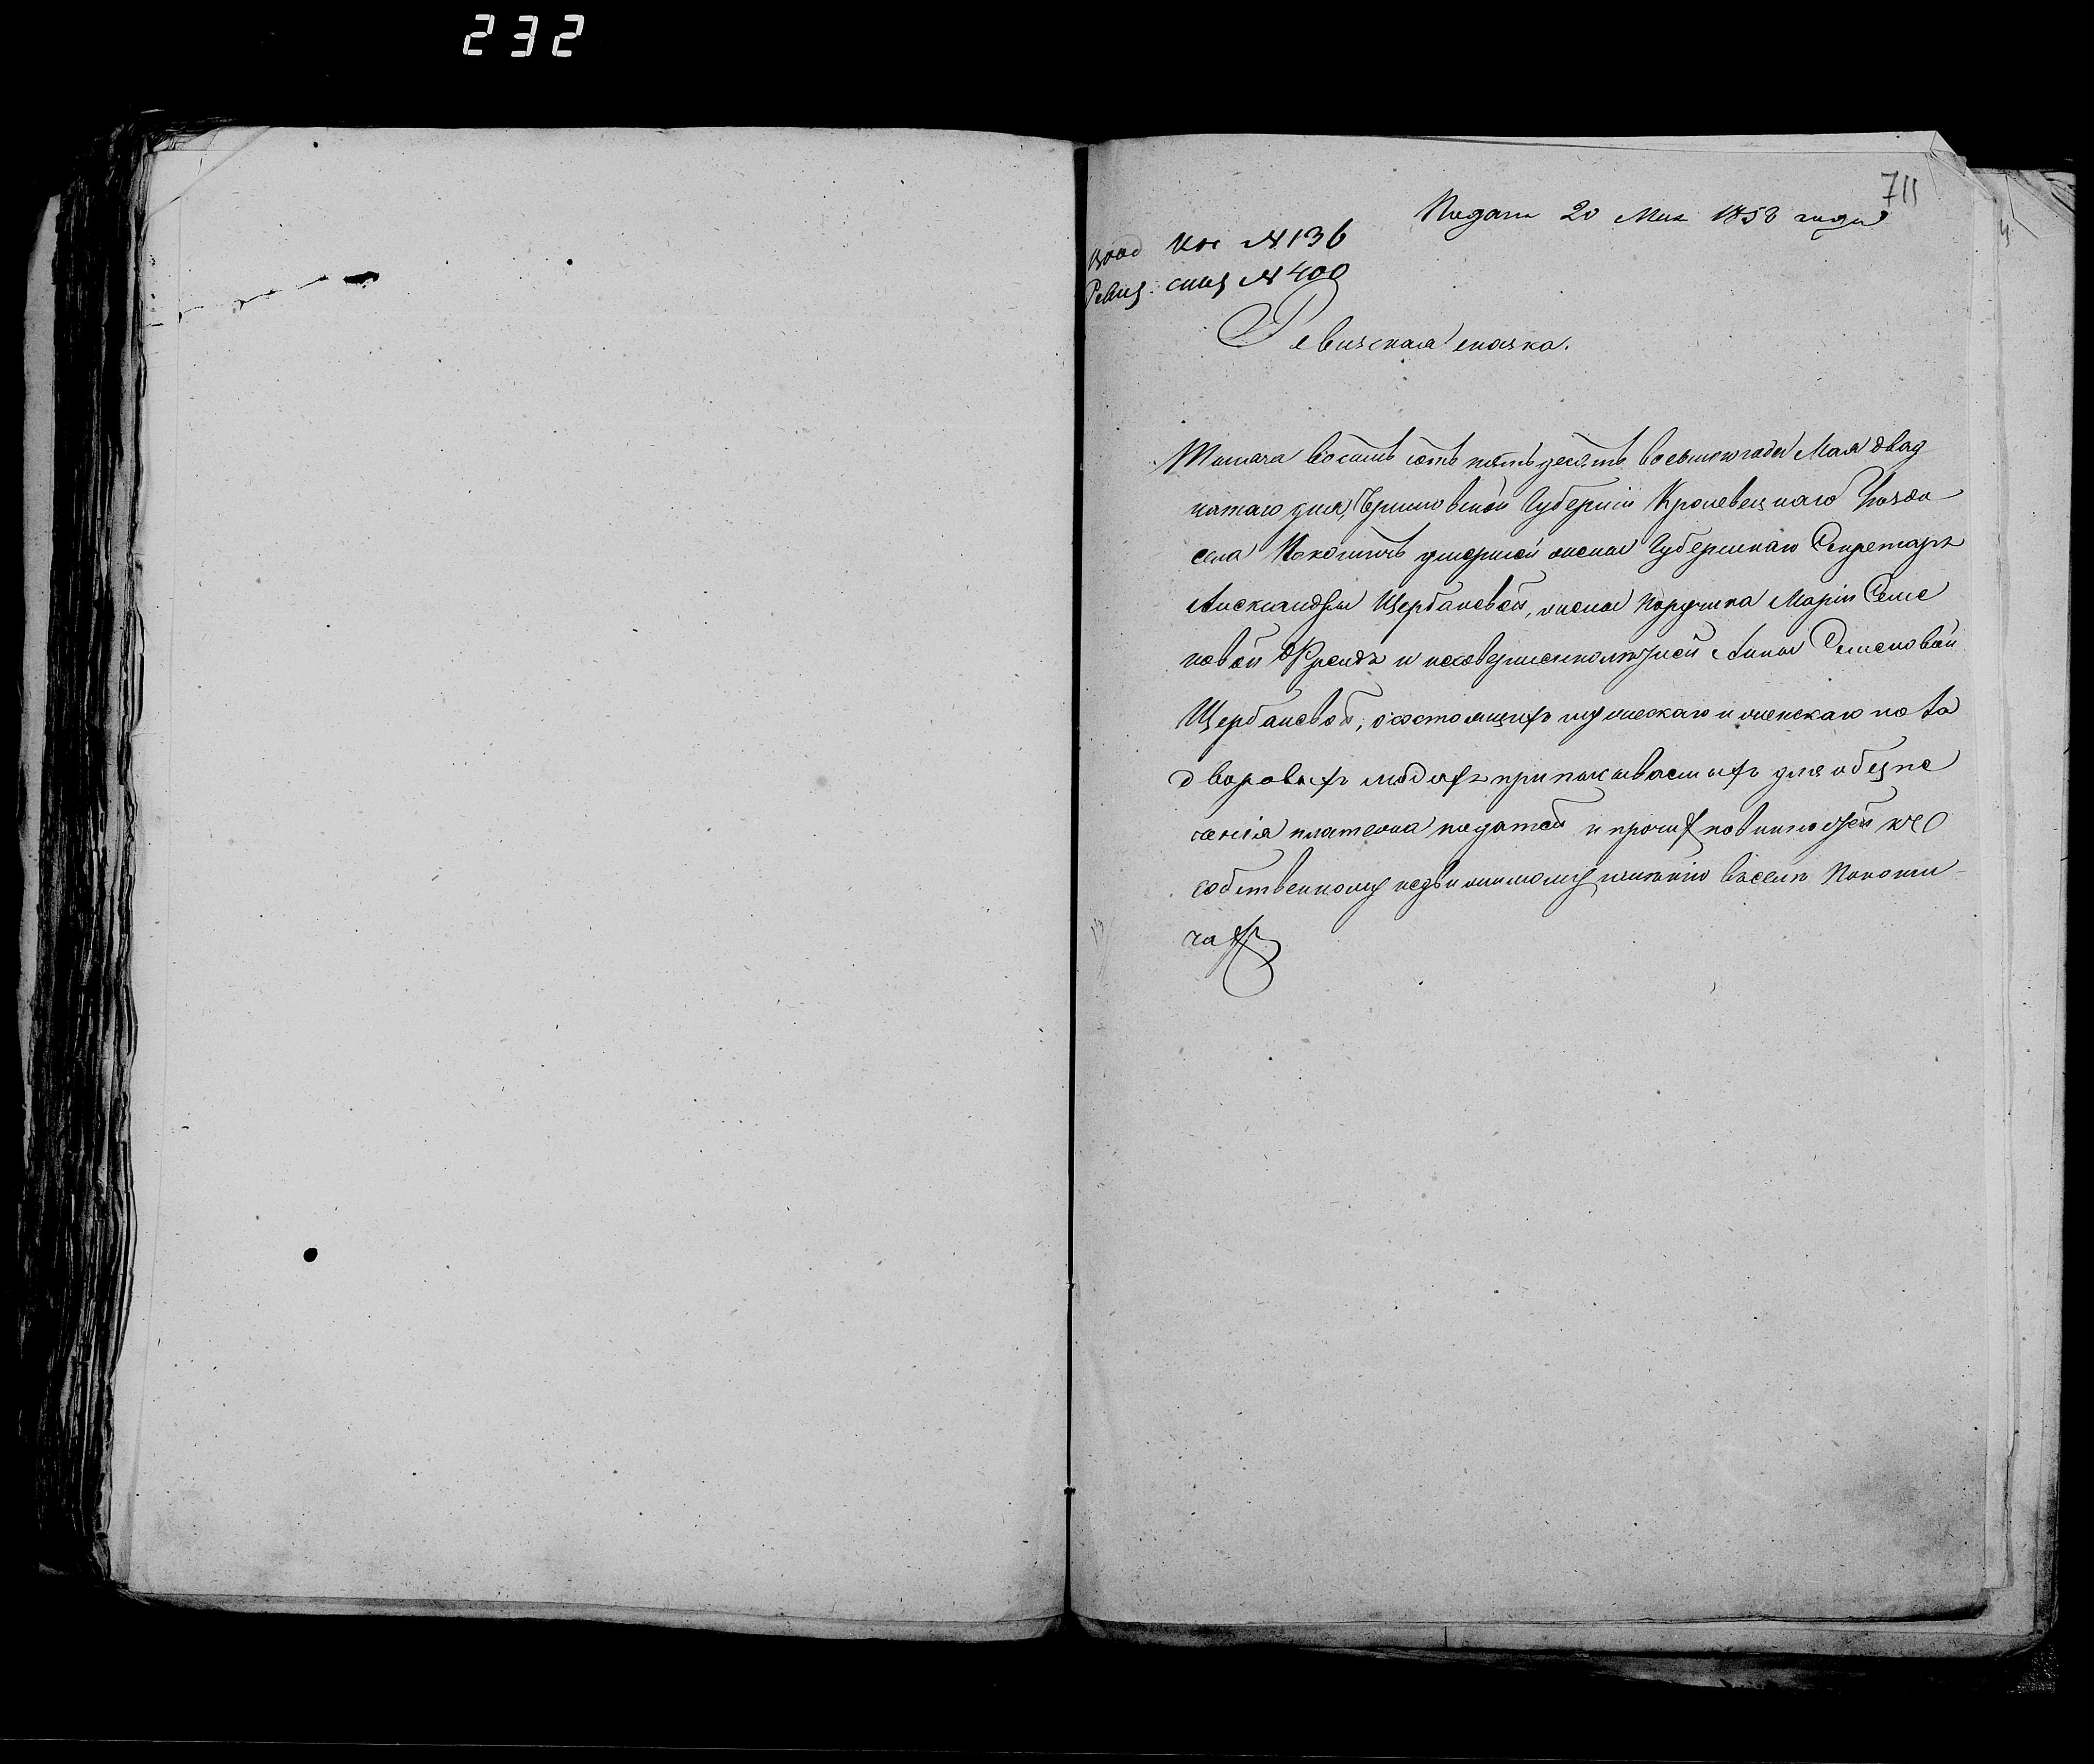 232
711
Подана 20 Мая 1858 года
№ 136
Ревиз. сказ № 400
Ревизская сказка.
Тысяча восемь сотъ пятьдесятъ восьмого года Мая двад
цатаго дня, Черниговской Губерніи Кролевецкаго Уѣзда
села Кокошичь умершей жены Губернскаго Секретаря
Александры Щербаковой, жены Поручика Маріи Семе
новой и несовершеннолѣтней Анны Семеновой
Щербаковой, о состоящихъ мужескаго и женскаго пола
дворовыхъ людяхъ приписываемыхъ для обезпе
ченія платежа податей и прочихъ повинностей къ
собственному недвижимому имѣнію въ селѣ
чахъ